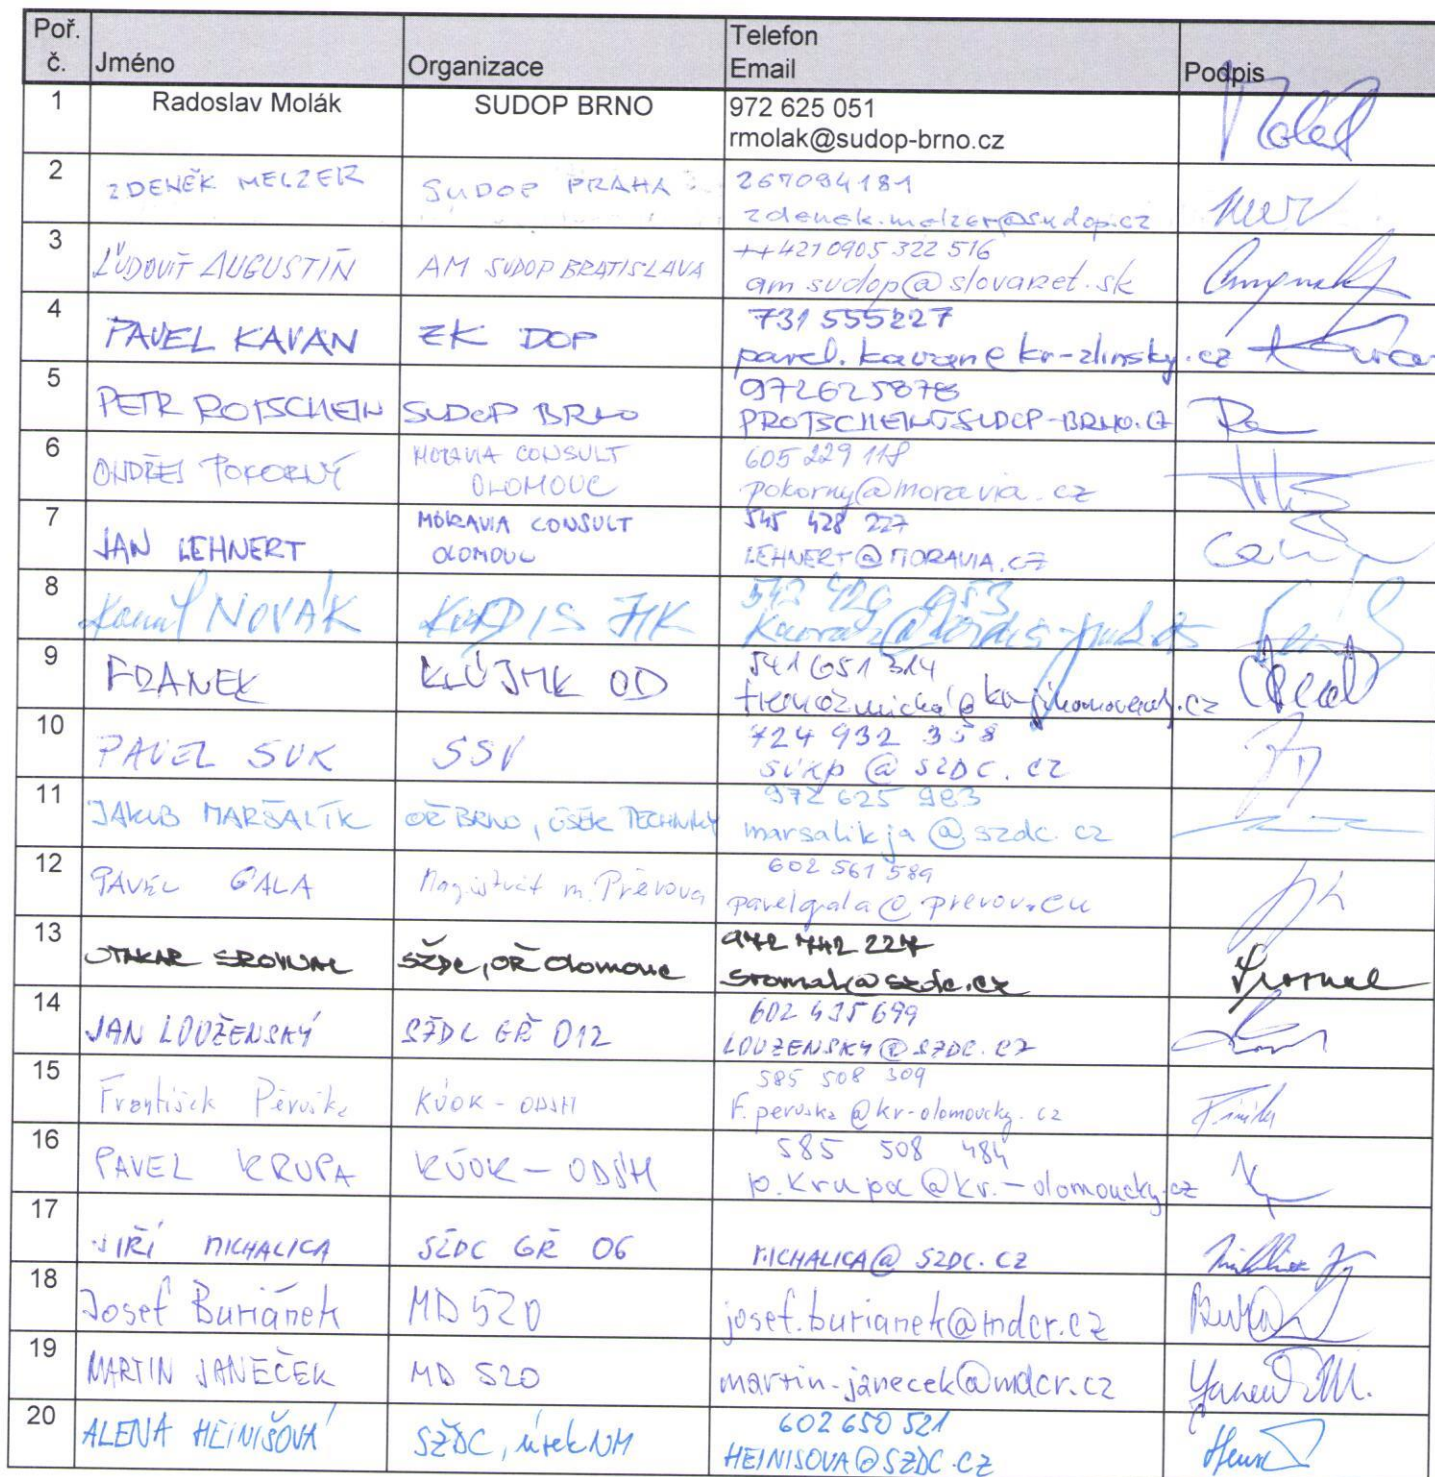 Poř. č. Jméno Organizace Telefon Email Podpis
1 Radoslav Molák SUDOP BRNO 972 625 051
rmolak@sudop-brno.cz
2 ZDENĚK MELZER SUDOP PRAHA 267094181
zdenek.melzer@sudop.cz
3 ĽUDOVÍT AUGUSTÍN AM SUDOP BRATISLAVA ++421 0905 322 516
am sudop@slovanet.sk
4 PAVEL KAVAN ZK DOP 731 555227
pavel.kavan@kr-zlinsky.cz
5 PETR ROTSCHEIN SUDOP BRNO 972625878
PROTSCHEIN@SUDOP-BRNO.CZ
6 ONDŘEJ POKORNÝ MORAVIA CONSULT 605 229 118
OLOMOUC pokorny@moravia.cz
7 JAN LEHNERT MORAVIA CONSULT 545 428 227
OLOMOUC LEHNERT@MORAVIA.CZ
8 Kamil NOVÁK KORDIS JMK
9 FRANEK KrÚ JMK OD 541 651 314
10 PAVEL SUK SSV 724 932 358
sukp@szdc.cz
11 JAKUB MARŠALÍK OŘ BRNO, ÚSEK TECHNIKY 972 625 983
marsalikja@szdc.cz
12 PAVEL GALA Magistrát m. Přerova 602 561 589
pavelgala@prerov.eu
13 OTAKAR SROVNAL SŽDC, OŘ Olomouc 972 742 227
srovnal@szdc.cz
14 JAN LOUŽENSKÝ SŽDC GŘ O12 602 435 699
LOUZENSKY@SZDC.CZ
15 František Pěruška KÚOK - ODSH 585 508 309
F.peruska@kr-olomoucky.cz
16 PAVEL KRUPA KÚOK - ODSH 585 508 484
p.krupa@kr.-olomoucky.cz
17 JIŘÍ MICHALICA SŽDC GŘ O6 MICHALICA@SZDC.CZ
18 Josef Buriánek MD 520 josef.burianek@mdcr.cz
19 MARTIN JANEČEK MD 520 martin.janecek@mdcr.cz
20 ALENA HEINIŠOVÁ SŽDC, úsek NM 602 650 521
HEINISOVA@SZDC.CZ